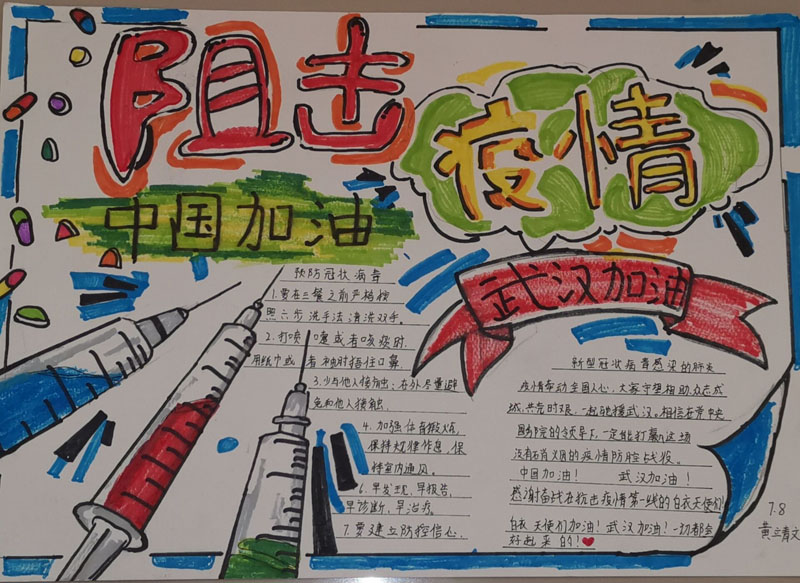 阻击
疫情
中国加油
武汉加油
预防冠状病毒
1.要在三餐之前严格按
照六步洗手法清洗双手。
2.打喷嚏或者咳痰时,
用纸巾或者袖肘捂住口鼻
3.少与他人接触;在外尽量避
免和他人接触。
4.加强体育锻炼,
保持规律作息,保
持室内通风。
6.早发现,早报告,
早诊断,早治疗。
7.要建立防控信心。
新型冠状病毒感染的肺炎
疫情牵动全国人心,大家守望相助,众志成
城,共克时艰,一起驰援武汉。相信在党中央
国务院的领导下,一定能打赢这场
没有硝烟的疫情防控战役。
中国加油! 武汉加油!
感谢奋战在抗击疫情第一线的白衣天使们!
白衣天使们加油!武汉加油!一切都会
好起来的!
7.8
黄立清文